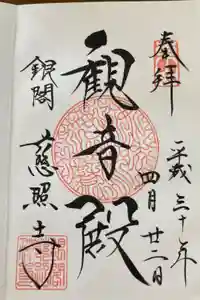 奉拝
平成三十一年
四月廿二日
観音殿
銀閣
慈照寺